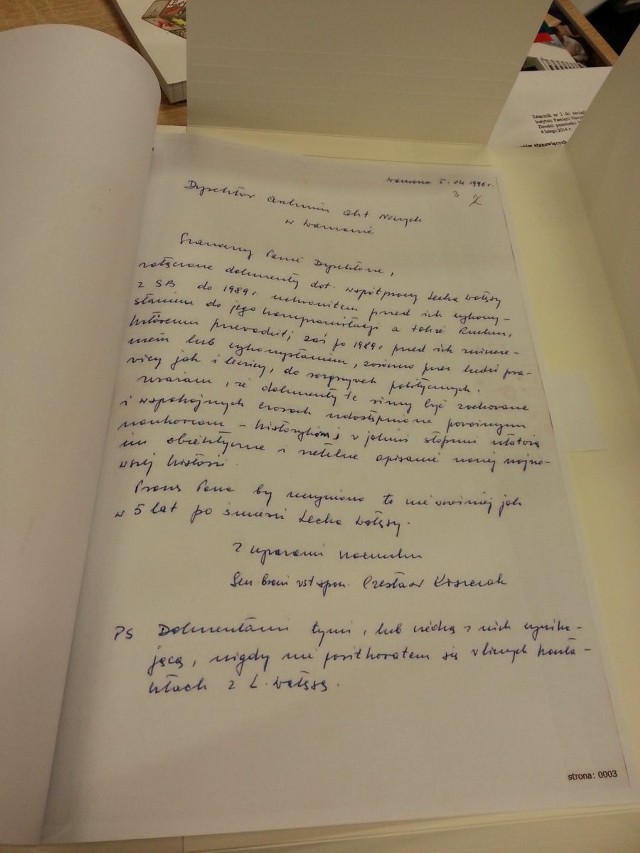 Warszawa 5.04.1996 r.
3
Dyrektor Archiwum Akt Nowych
w Warszawie
Szanowny Panie Dyrektorze,
załączone dokumenty dot. współpracy Lecha Wałęsy
z SB do 1989 r. uchroniłem przed ich wykorzy-
staniem do jego kompromitacji a także Ruchu,
któremu przewodził; zaś po 1989 r. przed ich zniszcze-
niem lub wykorzystaniem, zarówno przez ludzi pra-
wicy jak i lewicy, do rozgrywek politycznych.
Uważam, że dokumenty te winny być zachowane
i w spokojnych czasach udostępnione poważnym
naukowcom – historykom; w jakimś stopniu ułatwią
im obiektywne i rzetelne opisanie naszej najno-
wszej historii.
Proszę Pana by uczyniono to nie wcześniej jak
w 5 lat po śmierci Lecha Wałęsy.
Z wyrazami szacunku
Gen broni w st spocz. Czesław Kiszczak
PS Dokumentami tymi, lub wiedzą z nich wynika-
jącą, nigdy nie posiłkowałem się w licznych konta-
ktach z L. Wałęsą.
strona: 0003